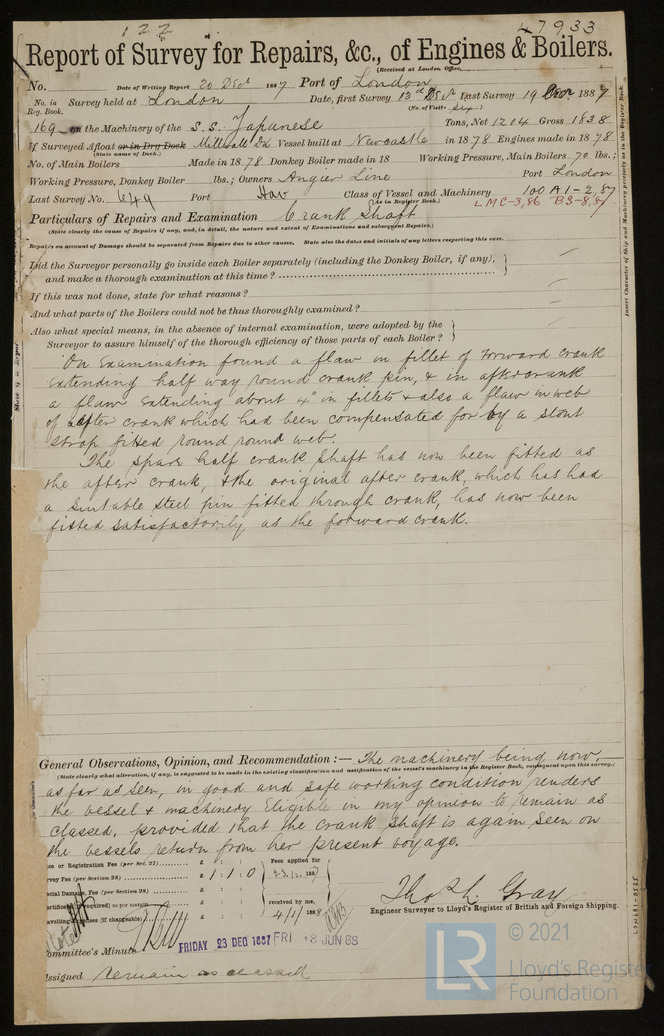 122
47933
Report of Survey for Repairs, &c., of Engines & Boilers.
(Received at London Office,
No. Date of Writing Report 20 Decr 1887 Port of London
No. in Reg. Book. Survey held at London Date, first Survey 13th Decr Last Survey 19 Decr 1887
(No. of Visits Six)
169 on the Machinery of the S.S. Japanese Tons, Net 1204 Gross 1838
If Surveyed Afloat or in Dry Dock Millwall Dk Vessel built at Newcastle in 1878 Engines made in 1878
(State name of Dock.)
No. of Main Boilers Made in 1878 Donkey Boiler made in 18 Working Pressure, Main Boilers 70 lbs;
Working Pressure, Donkey Boiler lbs.; Owners Angier Line Port London
Last Survey No. 649 Port Hav Class of Vessel and Machinery 100 A1-2,87
(as in Register Book.) LMC-3,86 BS-8,87
Particulars of Repairs and Examination Crank Shaft
(State clearly the cause of Repairs if any, and, in detail, the nature and extent of Examinations and subsequent Repairs.)
Repairs on account of Damage should be separated from Repairs due to other causes. State also the dates and initials of any letters respecting this case.
Did the Surveyor personally go inside each Boiler separately (including the Donkey Boiler, if any),
and make a thorough examination at this time?
If this was not done, state for what reasons?
And what parts of the Boilers could not be thus thoroughly examined?
Also what special means, in the absence of internal examination, were adopted by the
Surveyor to assure himself of the thorough efficiency of those parts of each Boiler?
Insert Character of Ship and Machinery precisely as in the Register Book.
On Examination found a flaw in fillet of Forward crank
extending half way round crank pin, & in after crank
a flaw extending about 4" in fillets & also a flaw in web
of after crank which had been compensated for by a stout
strap fitted round round web.
The spare half crank shaft has now been fitted as
the after crank, & the original after crank, which has had
a suitable steel pin fitted through crank, has now been
fitted satisfactorily as the forward crank.
General Observations, Opinion, and Recommendation:— The machinery being now,
(State clearly what alteration, if any, is suggested to be made in the existing classification and notification of the vessel's machinery in the Register Book, consequent upon this survey.)
as far as seen, in good and safe working condition renders
the vessel & machinery Eligible in my opinion to remain as
classed, provided that the crank shaft is again seen on
the vessels return from her present voyage.
ce or Registration Fee (per Sec. 27) £ : : Fees applied for
rvey Fee (per Section 28) £ 1 : 1 : 0
ecial Damage Fee (per Section 28) £ : :
received by me,
4/1/1888
Thos L. Gray
Engineer Surveyor to Lloyd's Register of British and Foreign Shipping.
ommittee's Minute FRIDAY 23 DEC 1887 FRI 8 JUN 88
ssigned remain as classed
LON681-0535
LR
© 2021
Lloyd's Register
Foundation